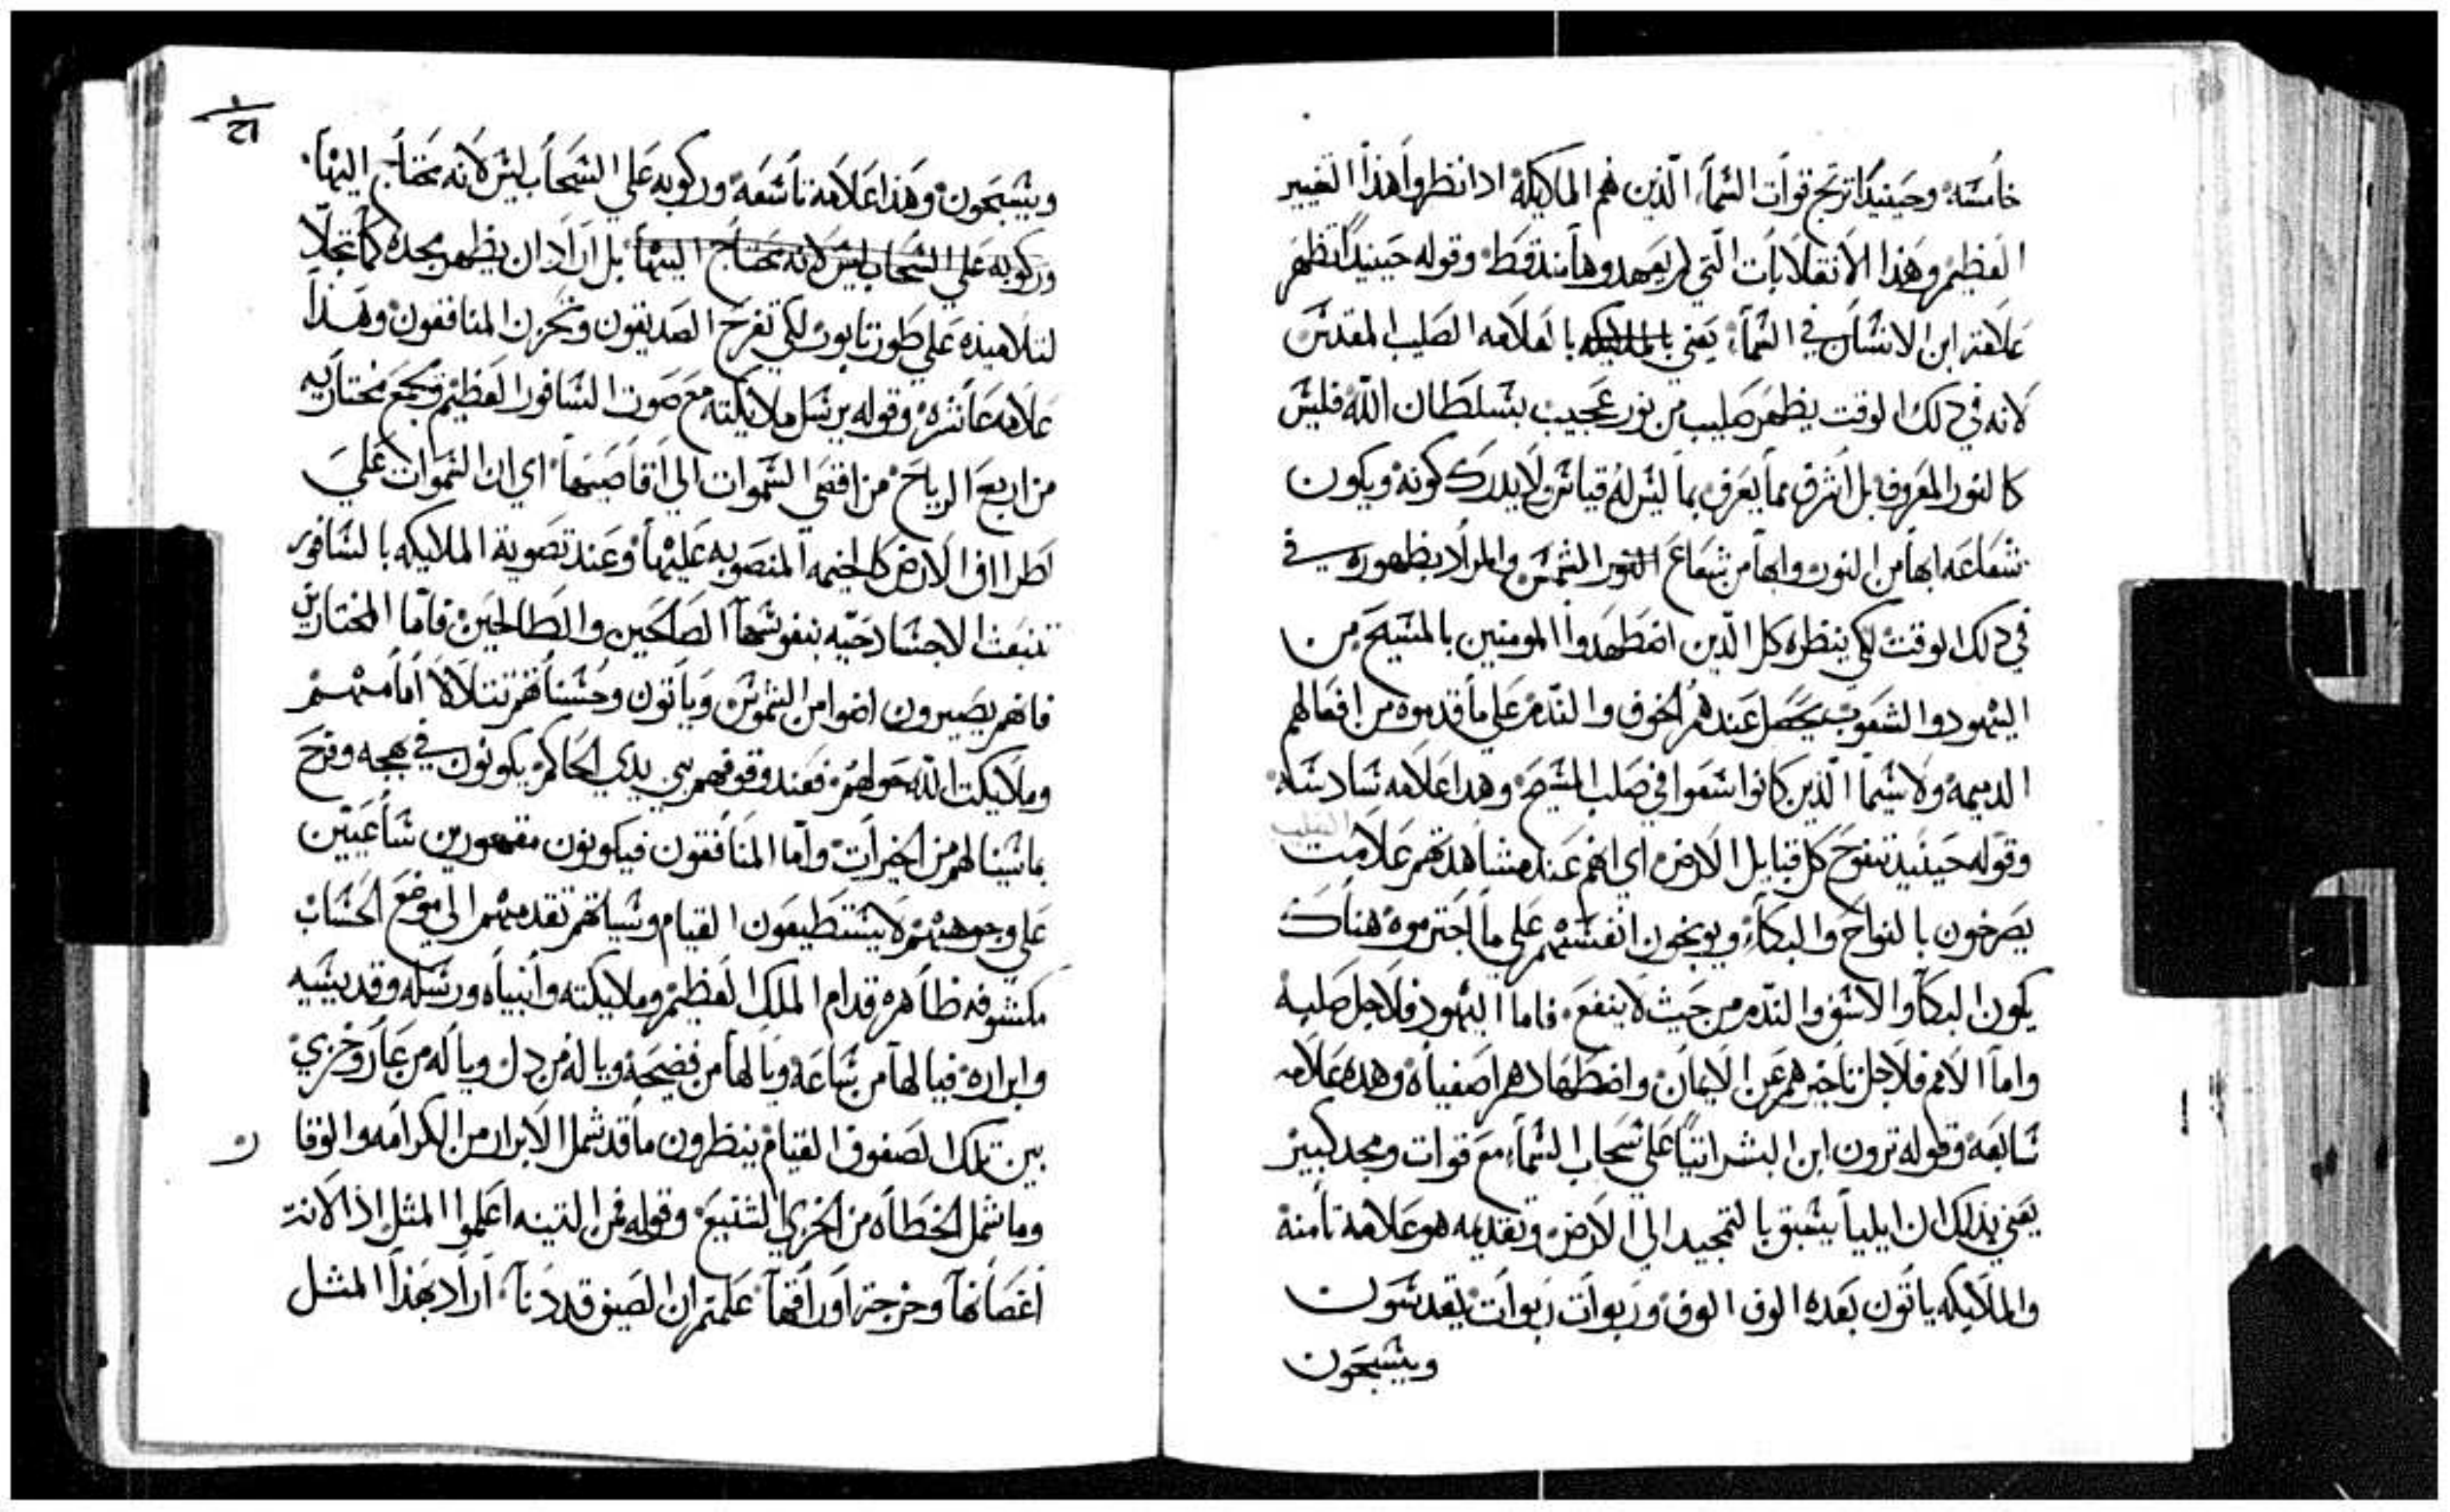 خامسه وحينيدا ترتج قوات السماء الذين هم الملايكة ادا نظروا هذا التغيير
العظيم وهذا الانقلابات التي لم يعهدوها مند قط وقوله حينيدا تظهر
علامة ابن الانسان في السماء يعني بالعلامه الصليب المقدس
لانه في دلك الوقت يظهر صليب من نور عجيب بسلطان الله فليس
كالنور المعروف بل اشرق مما يعرف بما ليس له قياس لا يدرك كونه ويكون
شعاعه ابها من النور وابها من شعاع الشمس والمراد بظهوره في
في دلك الوقت لكي ينظره كل الدين اضطهدوا المومنين بالمسيح من
اليهود والشعوب يحصل عندهم الخوف والندم على ما قدموه من افعالهم
الدميمه ولاسيما الذين كانوا سعوا في صلب المسيح وهدا علامه سادسه
وقوله حينيد تنوح كل قبايل الارض اي انهم عند مشاهدتهم علامت الصليب
يصرخون بالنواح والبكاء ويوبخون انفسهم على ما اجترموه هناك
يكون البكا والاسف والندم من حيث لا ينفع فاما اليهود فلاجل صلبه
واما الامم فلاجل تاخيرهم عن الايمان واضطهادهم اصفياه وهده علامه
سابعه وقوله ترون ابن البشر اتيا على سحاب السماء مع قوات ومجد كبير
يعني بذلك ان ايليا يسبق بالتمجيد الي الارض وتقديمه هو علامة تامنة
والملايكه ياتون بعده الوف الوف وربوات ربوات يقدسون
ويسبحون
ويسبحون وهذا علامة تاسعه وركوبه علي السحاب ليس لانه يحتاج اليها
وركوبه علي السحاب ليس لانه يحتاج اليها بل اراد ان يظهر مجده كما تجلا
لتلاميذه على طور تابور لكي تفرح الصديقون وتحزن المنافقون وهذا
علامه عاشره وقوله يرسل ملايكته مع صوت السافور العظيم وتجمع مختاريه
من اربع الرياح من اقصي السموات الي اقاصيها اي ان السموات علي
اطراف الارض كالخيمه المنصوبه عليها وعند تصويت الملايكه بالسافور
تنبعث الاجساد حيه بنفوسها الصالحين والطالحين فاما المختارين
فانهم يصيرون اضوا من الشموس وياتون وحسناتهم تتلالا امامهم
وملايكت الله حولهم فعند وقوفهم بين يدي الحاكم يكونون في بهجه وفرح
بما سينالهم من الخيرات واما المنافقون فيكونون مقهورين ساعيين
علي وجوههم لا يستطيعون القيام وسياتهم تقدمهم الي موضع الحساب
مكشوفه ظاهره قدام الملك العظيم وملايكته وانبياه ورسله وقديسيه
وابراره فيا لها من ساعة ويا لها من فضيحة ويا له من دل ويا له من عار وخزي
بين تلك الصفوف القيام ينظرون ما قد شمل الابرار من الكرامه والوفا
وما شمل الخطاه من الخزي الشنيع وقوله فمن التينه اعلموا المثل اذا لانت
اغصانها وخرجت اوراقها علمتم ان الصيف قد دنا اراد بهذا المثل